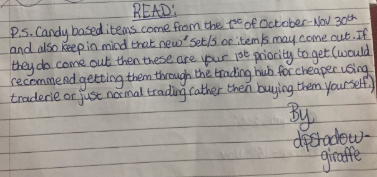 READ:
P.S. Candy based items come from the 1st of October-Nov 30th
and also keep in mind that new set/s or item/s may come out. If
they do come out then these are your 1st priority to get (would
recommend getting them through the trading hub for cheaper using
traderie or just normal trading rather then buying them yourself.)
By
dpshadow-
giraffe